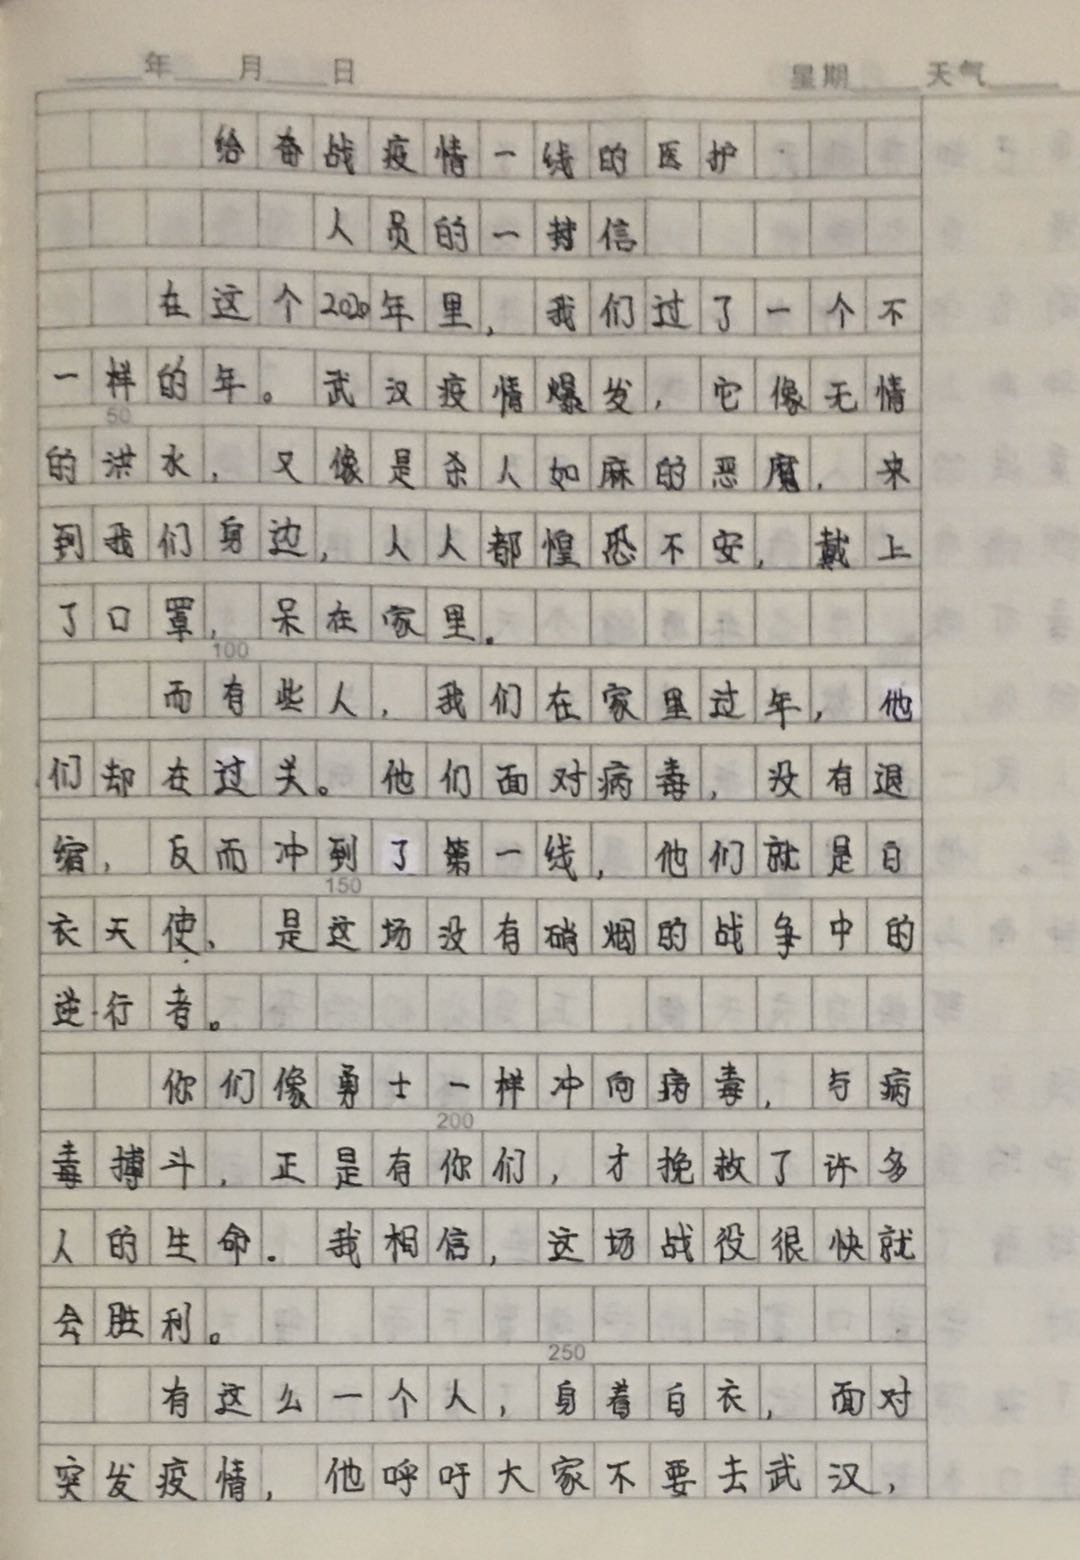 ____年____月____日 星期____天气____
给奋战疫情一线的医护
人员的一封信
在这个2020年里，我们过了一个不
一样的年。武汉疫情爆发，它像无情
50
的洪水，又像是杀人如麻的恶魔，来
到我们身边，人人都惶恐不安，戴上
了口罩，呆在家里。
100
而有些人，我们在家里过年，他
们却在过关。他们面对病毒，没有退
缩，反而冲到了第一线，他们就是白
150
衣天使、是这场没有硝烟的战争中的
逆行者。
你们像勇士一样冲向病毒，与病
200
毒搏斗，正是有你们，才挽救了许多
人的生命。我相信，这场战役很快就
会胜利。
250
有这么一个人，身着白衣，面对
突发疫情，他呼吁大家不要去武汉，